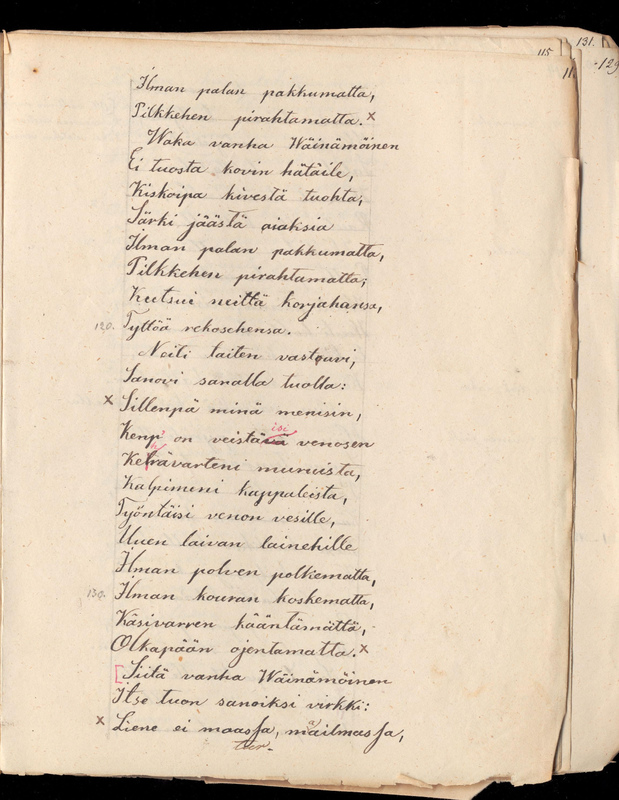 131.
115
129
11
Ilman palan pakkumatta,
Pilkkehen pirahtamatta. x
Waka vanha Wäinämöinen
Ei tuosta kovin hätäile,
Kiskoipa kivestä tuohta,
Särki jäästä aiaksia
Ilman palan pakkumatta,
Pilkkehen pirahtamatta;
Kutsui neittä korjahansa,
120. Tyttöä rekosehensa.
Neiti taiten vastouvi,
Sanovi sanalla tuolla:
x Sillenpä minä menisin,
isi
Kenp' on veistävä venosen
h
Keträvarteni muruista,
Kalpimeni kappaleista,
Työntäisi venon vesille,
Uuen laivan lainehille
Ilman polven polkematta,
130. Ilman kouran koskematta,
Käsivarren kääntämättä,
Olkapään ojentamatta. x
[Siitä vanha Wäinämöinen
Itse tuon sanoiksi virkki:
x Liene ei maassa, maailmassa,